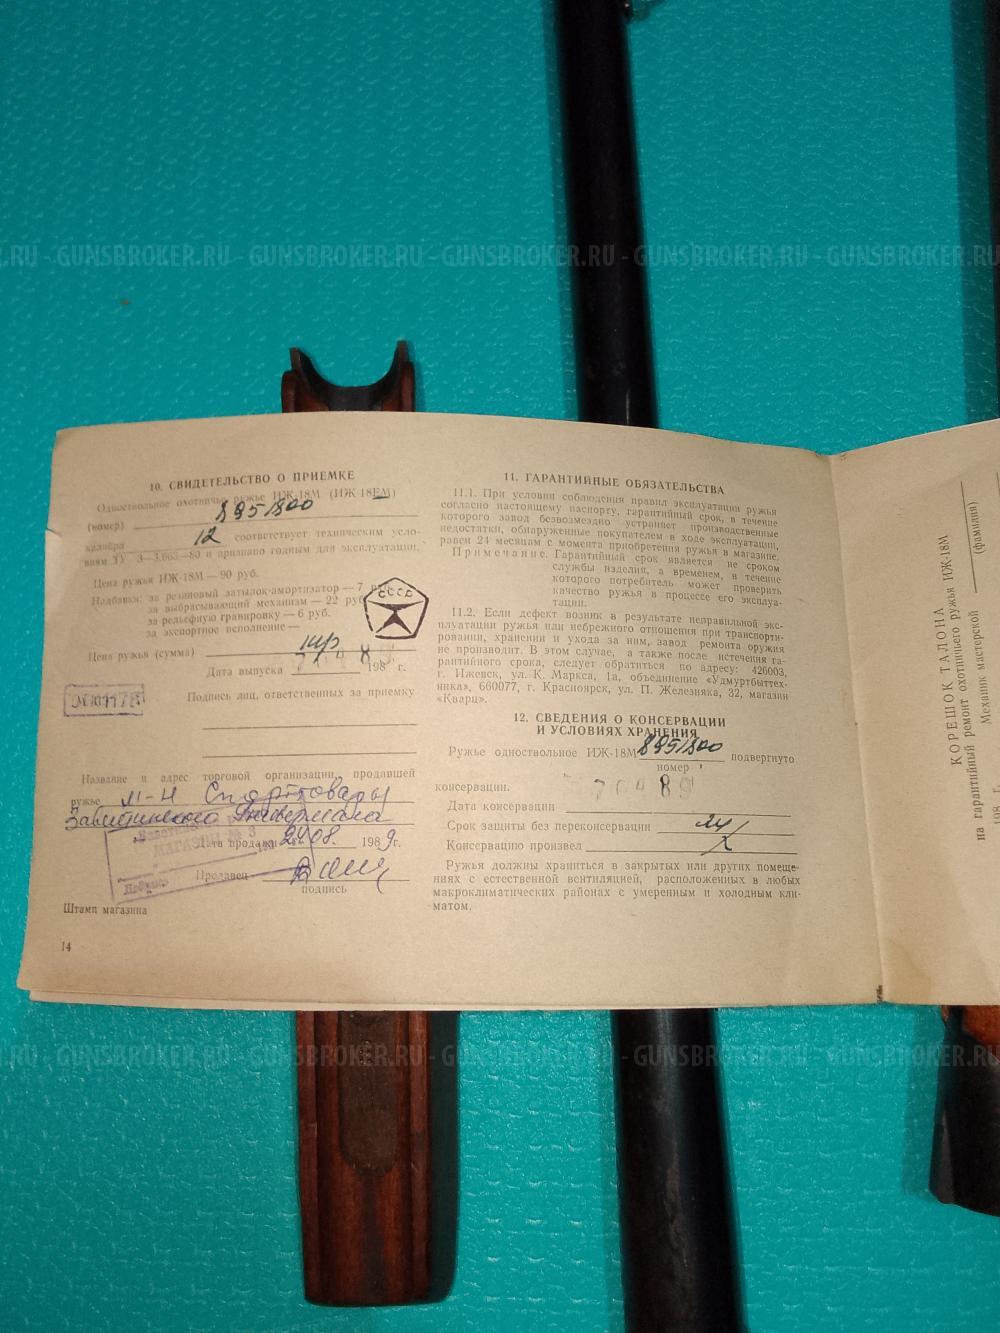 .RU - GUNSBROKER.RU - GUNSBROKER.RU - GUNSBROKER.RU - GUNSBROKER.RU - GUNSBROKER
10. СВИДЕТЕЛЬСТВО О ПРИЕМКЕ
Одноствольное охотничье ружье ИЖ-18М (ИЖ-18ЕМ)
(номер) 8951800
калибра 12 соответствует техническим усло-
виям ТУ 3—3.663—80 и признано годным для эксплуатации.
Цена ружья ИЖ-18М — 90 руб.
Надбавки: за резиновый затылок-амортизатор — 7 руб.
за выбрасывающий механизм — 22 руб.
за рельефную гравировку — 6 руб.
за экспортное исполнение —
СССР
Цена ружья (сумма)
Дата выпуска 198 г.
Подпись лиц, ответственных за приемку
Название и адрес торговой организации, продавшей
ружье М-Н Спорттовары
Завитинского Универмага
МАГАЗИН № 3
Дата продажи 24.08. 1989г.
Продавец
подпись
Штамп магазина
14
11. ГАРАНТИЙНЫЕ ОБЯЗАТЕЛЬСТВА
11.1. При условии соблюдения правил эксплуатации ружья
согласно настоящему паспорту, гарантийный срок, в течение
которого завод безвозмездно устраняет производственные
недостатки, обнаруженные покупателем в ходе эксплуатации,
равен 24 месяцам с момента приобретения ружья в магазине.
Примечание. Гарантийный срок является не сроком
службы изделия, а временем, в течение
которого потребитель может проверить
качество ружья в процессе его эксплуа-
тации.
11.2. Если дефект возник в результате неправильной экс-
плуатации ружья или небрежного отношения при транспорти-
ровании, хранении и ухода за ним, завод ремонта оружия
не производит. В этом случае, а также после истечения га-
рантийного срока, следует обратиться по адресу: 426003,
г. Ижевск, ул. К. Маркса, 1а, объединение «Удмуртбыттех-
ника», 660077, г. Красноярск, ул. П. Железняка, 32, магазин
«Кварц».
12. СВЕДЕНИЯ О КОНСЕРВАЦИИ
И УСЛОВИЯХ ХРАНЕНИЯ
Ружье одноствольное ИЖ-18М 8951800 подвергнуто
номер
консервации.
Дата консервации
Срок защиты без переконсервации
Консервацию произвел
Ружья должны храниться в закрытых или других помеще-
ниях с естественной вентиляцией, расположенных в любых
макроклиматических районах с умеренным и холодным кли-
матом.
КОРЕШОК ТАЛОНА
на гарантийный ремонт охотничьего ружья ИЖ-18М
Механик мастерской
(фамилия)
198 г.
.RU - GUNSBROKER.RU - GUNSBROKER.RU - GUNSBROKER.RU - GUNSBROKER.RU - GUNSBROKER